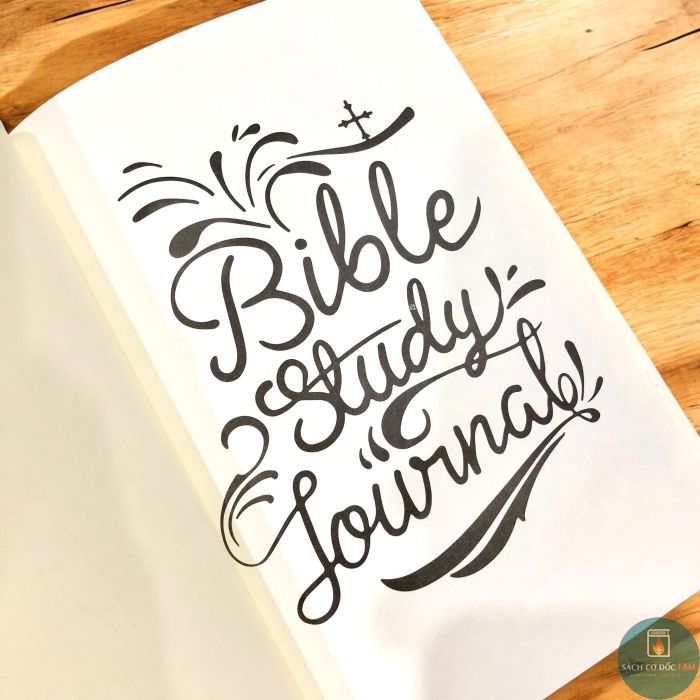 Bible
Study
Journal
SÁCH CƠ ĐỐC TÂM